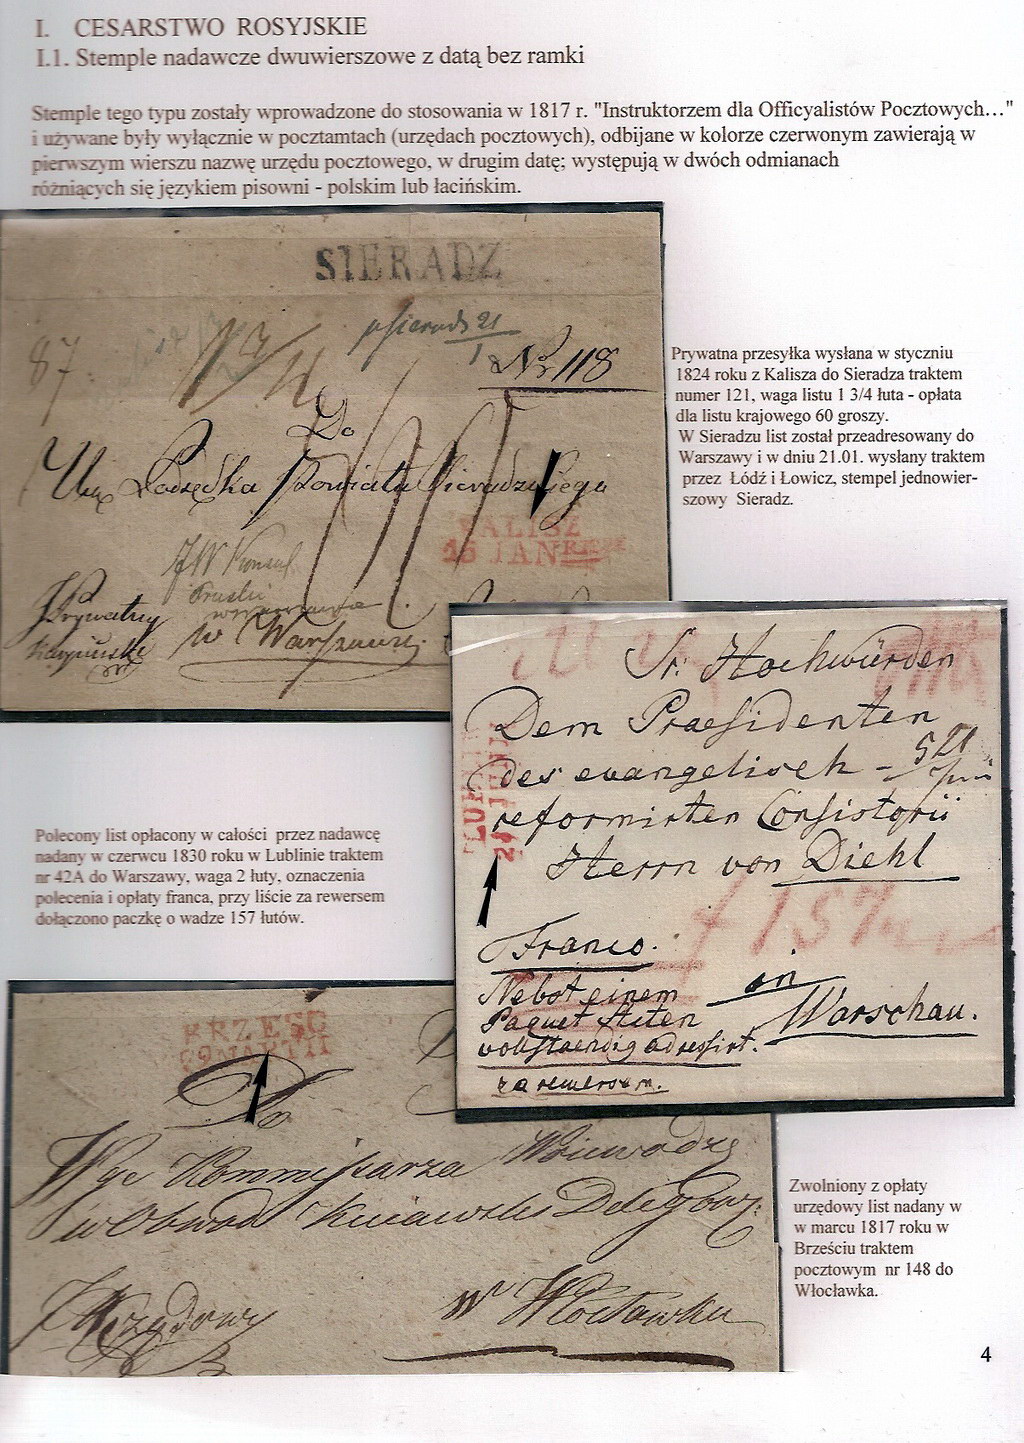 I. CESARSTWO ROSYJSKIE
I.1. Stemple nadawcze dwuwierszowe z datą bez ramki
Stemple tego typu zostały wprowadzone do stosowania w 1817 r. "Instruktorzem dla Officyalistów Pocztowych…"
i używane były wyłącznie w pocztamtach (urzędach pocztowych), odbijane w kolorze czerwonym zawierają w
pierwszym wierszu nazwę urzędu pocztowego, w drugim datę; występują w dwóch odmianach
różniących się językiem pisowni - polskim lub łacińskim.
SIERADZ
87
21
1
No 118
Do
Powiatu
KALISZ
JW Konsul
Pruski
Prywatny
w Warszawie
Prywatna przesyłka wysłana w styczniu
1824 roku z Kalisza do Sieradza traktem
numer 121, waga listu 1 3/4 łuta - opłata
dla listu krajowego 60 groszy.
W Sieradzu list został przeadresowany do
Warszawy i w dniu 21.01. wysłany traktem
przez Łódź i Łowicz, stempel jednowier-
szowy Sieradz.
Sr. Hochwürden
Dem Praesidenten
des evangelisch -
reformirten Consistorii
Herrn von Diehl
LUBLIN
157
Franco.
in
Nebst einem
Warschau.
Paquet Acten
vollstaendig adressirt.
za rewersem.
Polecony list opłacony w całości przez nadawcę
nadany w czerwcu 1830 roku w Lublinie traktem
nr 42A do Warszawy, waga 2 łuty, oznaczenia
polecenia i opłaty franca, przy liście za rewersem
dołączono paczkę o wadze 157 łutów.
BRZESC
MARTII
Do
Wgo Kommissarza Woiewodz
w Obwod Kuiawski Delegow:
Urzędowy
w Włocławku
Zwolniony z opłaty
urzędowy list nadany w
w marcu 1817 roku w
Brześciu traktem
pocztowym nr 148 do
Włocławka.
4